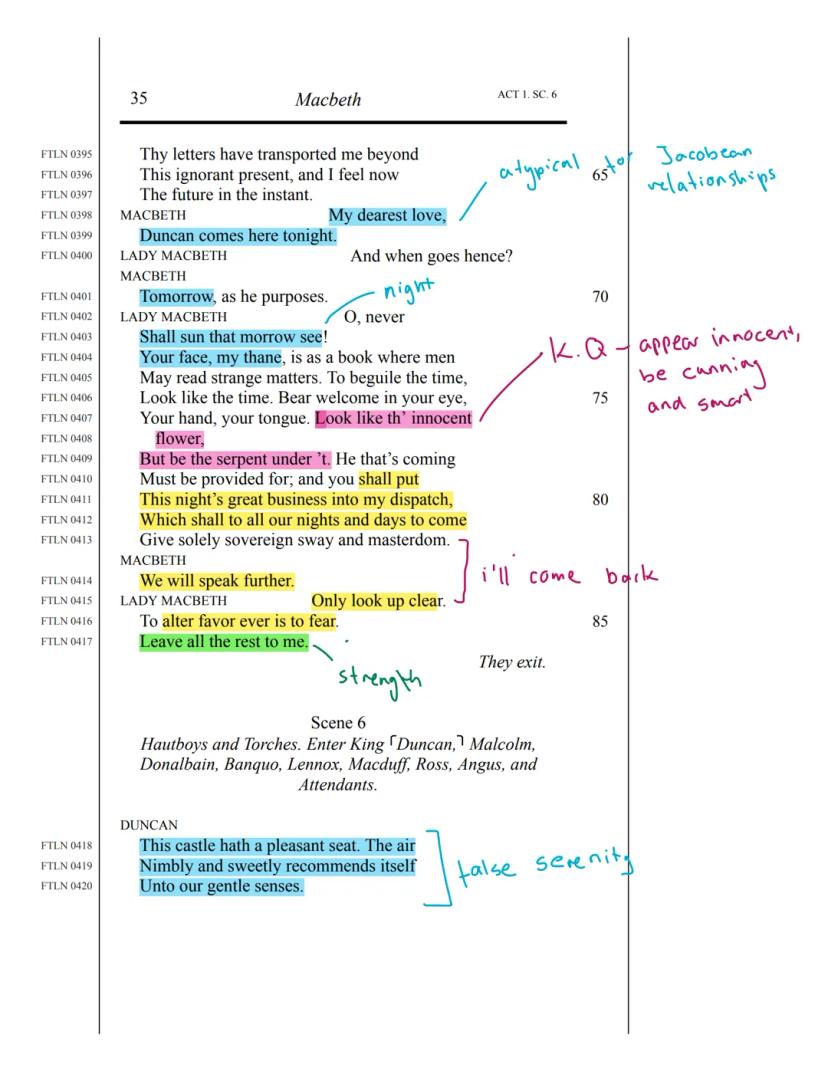 35 Macbeth ACT 1. SC. 6
FTLN 0395 Thy letters have transported me beyond
FTLN 0396 This ignorant present, and I feel now 65
FTLN 0397 The future in the instant.
atypical for Jacobean
relationships
FTLN 0398 MACBETH My dearest love,
FTLN 0399 Duncan comes here tonight.
FTLN 0400 LADY MACBETH And when goes hence?
MACBETH
FTLN 0401 Tomorrow, as he purposes. 70
night
FTLN 0402 LADY MACBETH O, never
FTLN 0403 Shall sun that morrow see!
FTLN 0404 Your face, my thane, is as a book where men
FTLN 0405 May read strange matters. To beguile the time,
FTLN 0406 Look like the time. Bear welcome in your eye, 75
FTLN 0407 Your hand, your tongue. Look like th’ innocent
FTLN 0408 flower,
K.Q – appear innocent,
be cunning
and smart
FTLN 0409 But be the serpent under ’t. He that’s coming
FTLN 0410 Must be provided for; and you shall put
FTLN 0411 This night’s great business into my dispatch, 80
FTLN 0412 Which shall to all our nights and days to come
FTLN 0413 Give solely sovereign sway and masterdom.
MACBETH
FTLN 0414 We will speak further.
i'll come back
FTLN 0415 LADY MACBETH Only look up clear.
FTLN 0416 To alter favor ever is to fear. 85
FTLN 0417 Leave all the rest to me.
strength
They exit.
Scene 6
Hautboys and Torches. Enter King ⌜Duncan,⌝ Malcolm,
Donalbain, Banquo, Lennox, Macduff, Ross, Angus, and
Attendants.
DUNCAN
FTLN 0418 This castle hath a pleasant seat. The air
FTLN 0419 Nimbly and sweetly recommends itself
FTLN 0420 Unto our gentle senses.
false serenity